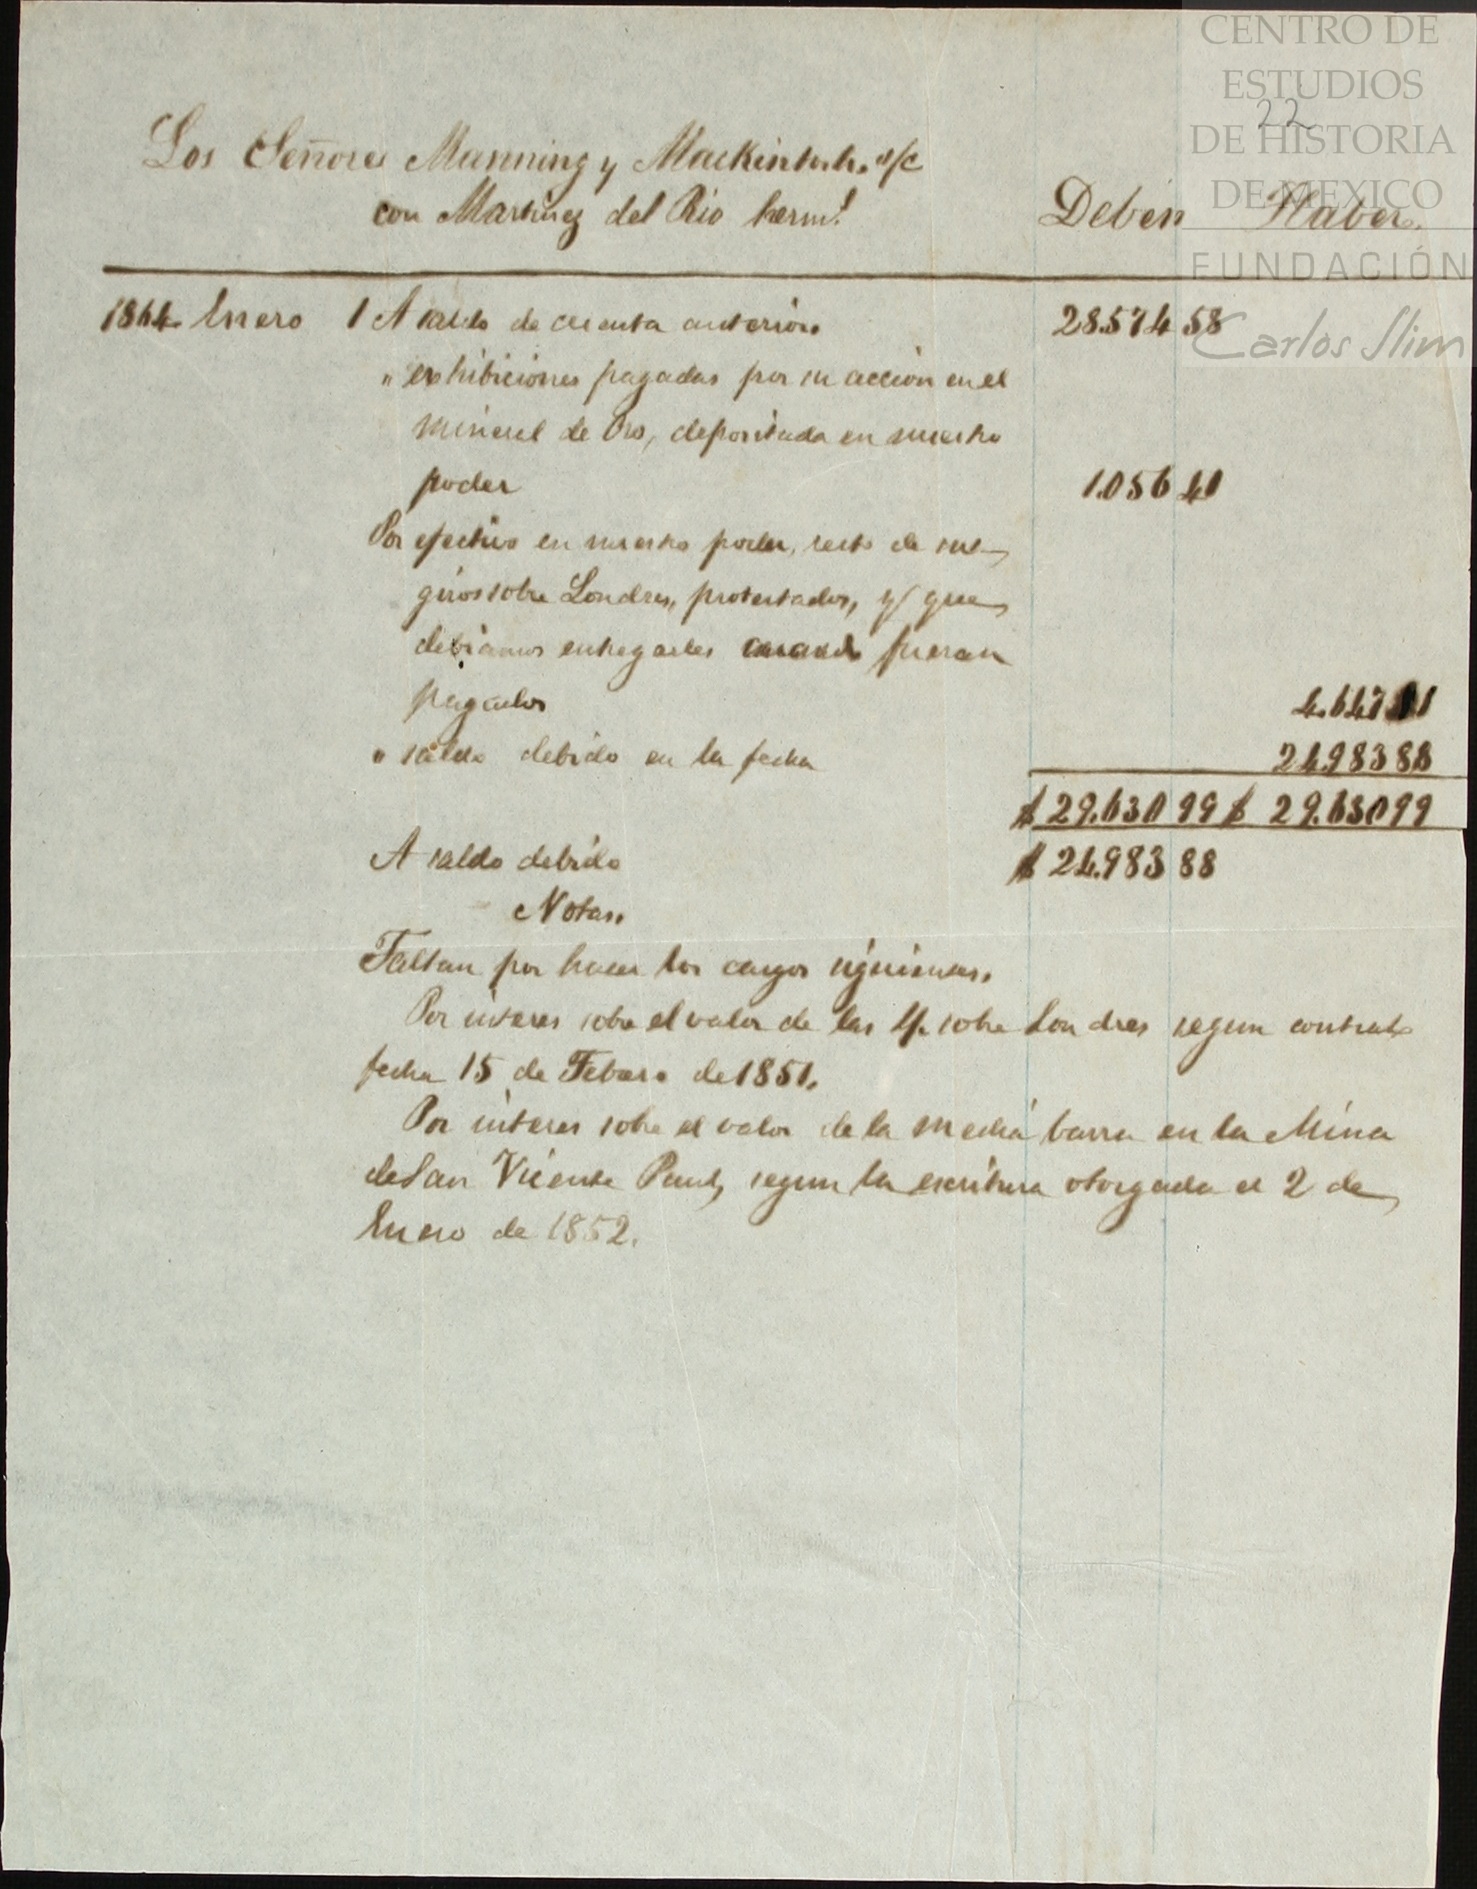 CENTRO DE
ESTUDIOS
DE HISTORIA
DE MEXICO
FUNDACIÓN
Carlos Slim
22
Los Señores Manning y Mackintosh. s/c
con Martinez del Rio herms.
Deben Haber.
1864 Enero 1 A saldo de cuenta anterior. 28.574 58
" exhibiciones pagadas por su accion en el
mineral de Oro, depositada en nuestro
poder 1.056 41
Por efectivo en nuestro poder, resto de sus
giros sobre Londres, protestados, y que
debiamos entregarles cuando fueran
pagados 4.647 11
" saldo debido en la fecha 24.983 88
$ 29.630 99 $ 29.630 99
A saldo debido $ 24.983 88
Notas.
Faltan por hacer los cargos siguientes.
Por interes sobre el valor de las L/. sobre Londres segun contrato
fecha 15 de Febrero de 1851.
Por interes sobre el valor de la media barra en la Mina
de San Vicente Paul, segun la escritura otorgada el 2 de
Enero de 1852.